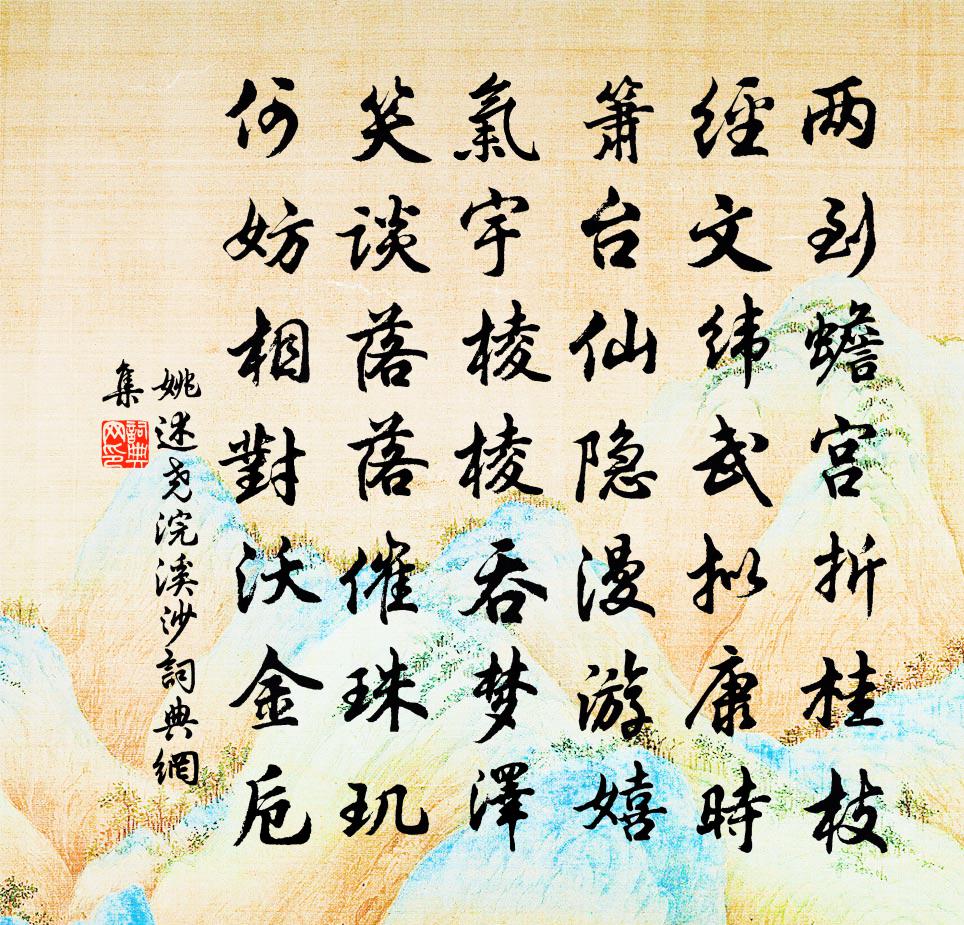 两到蟾宫折桂枝
經文纬武拟康時
箫台仙隐漫游嬉
氣宇棱棱吞梦澤
笑谈落落傕珠玑
何妨相對沃金卮
姚述尧浣溪沙詞典網
集
詞典网印